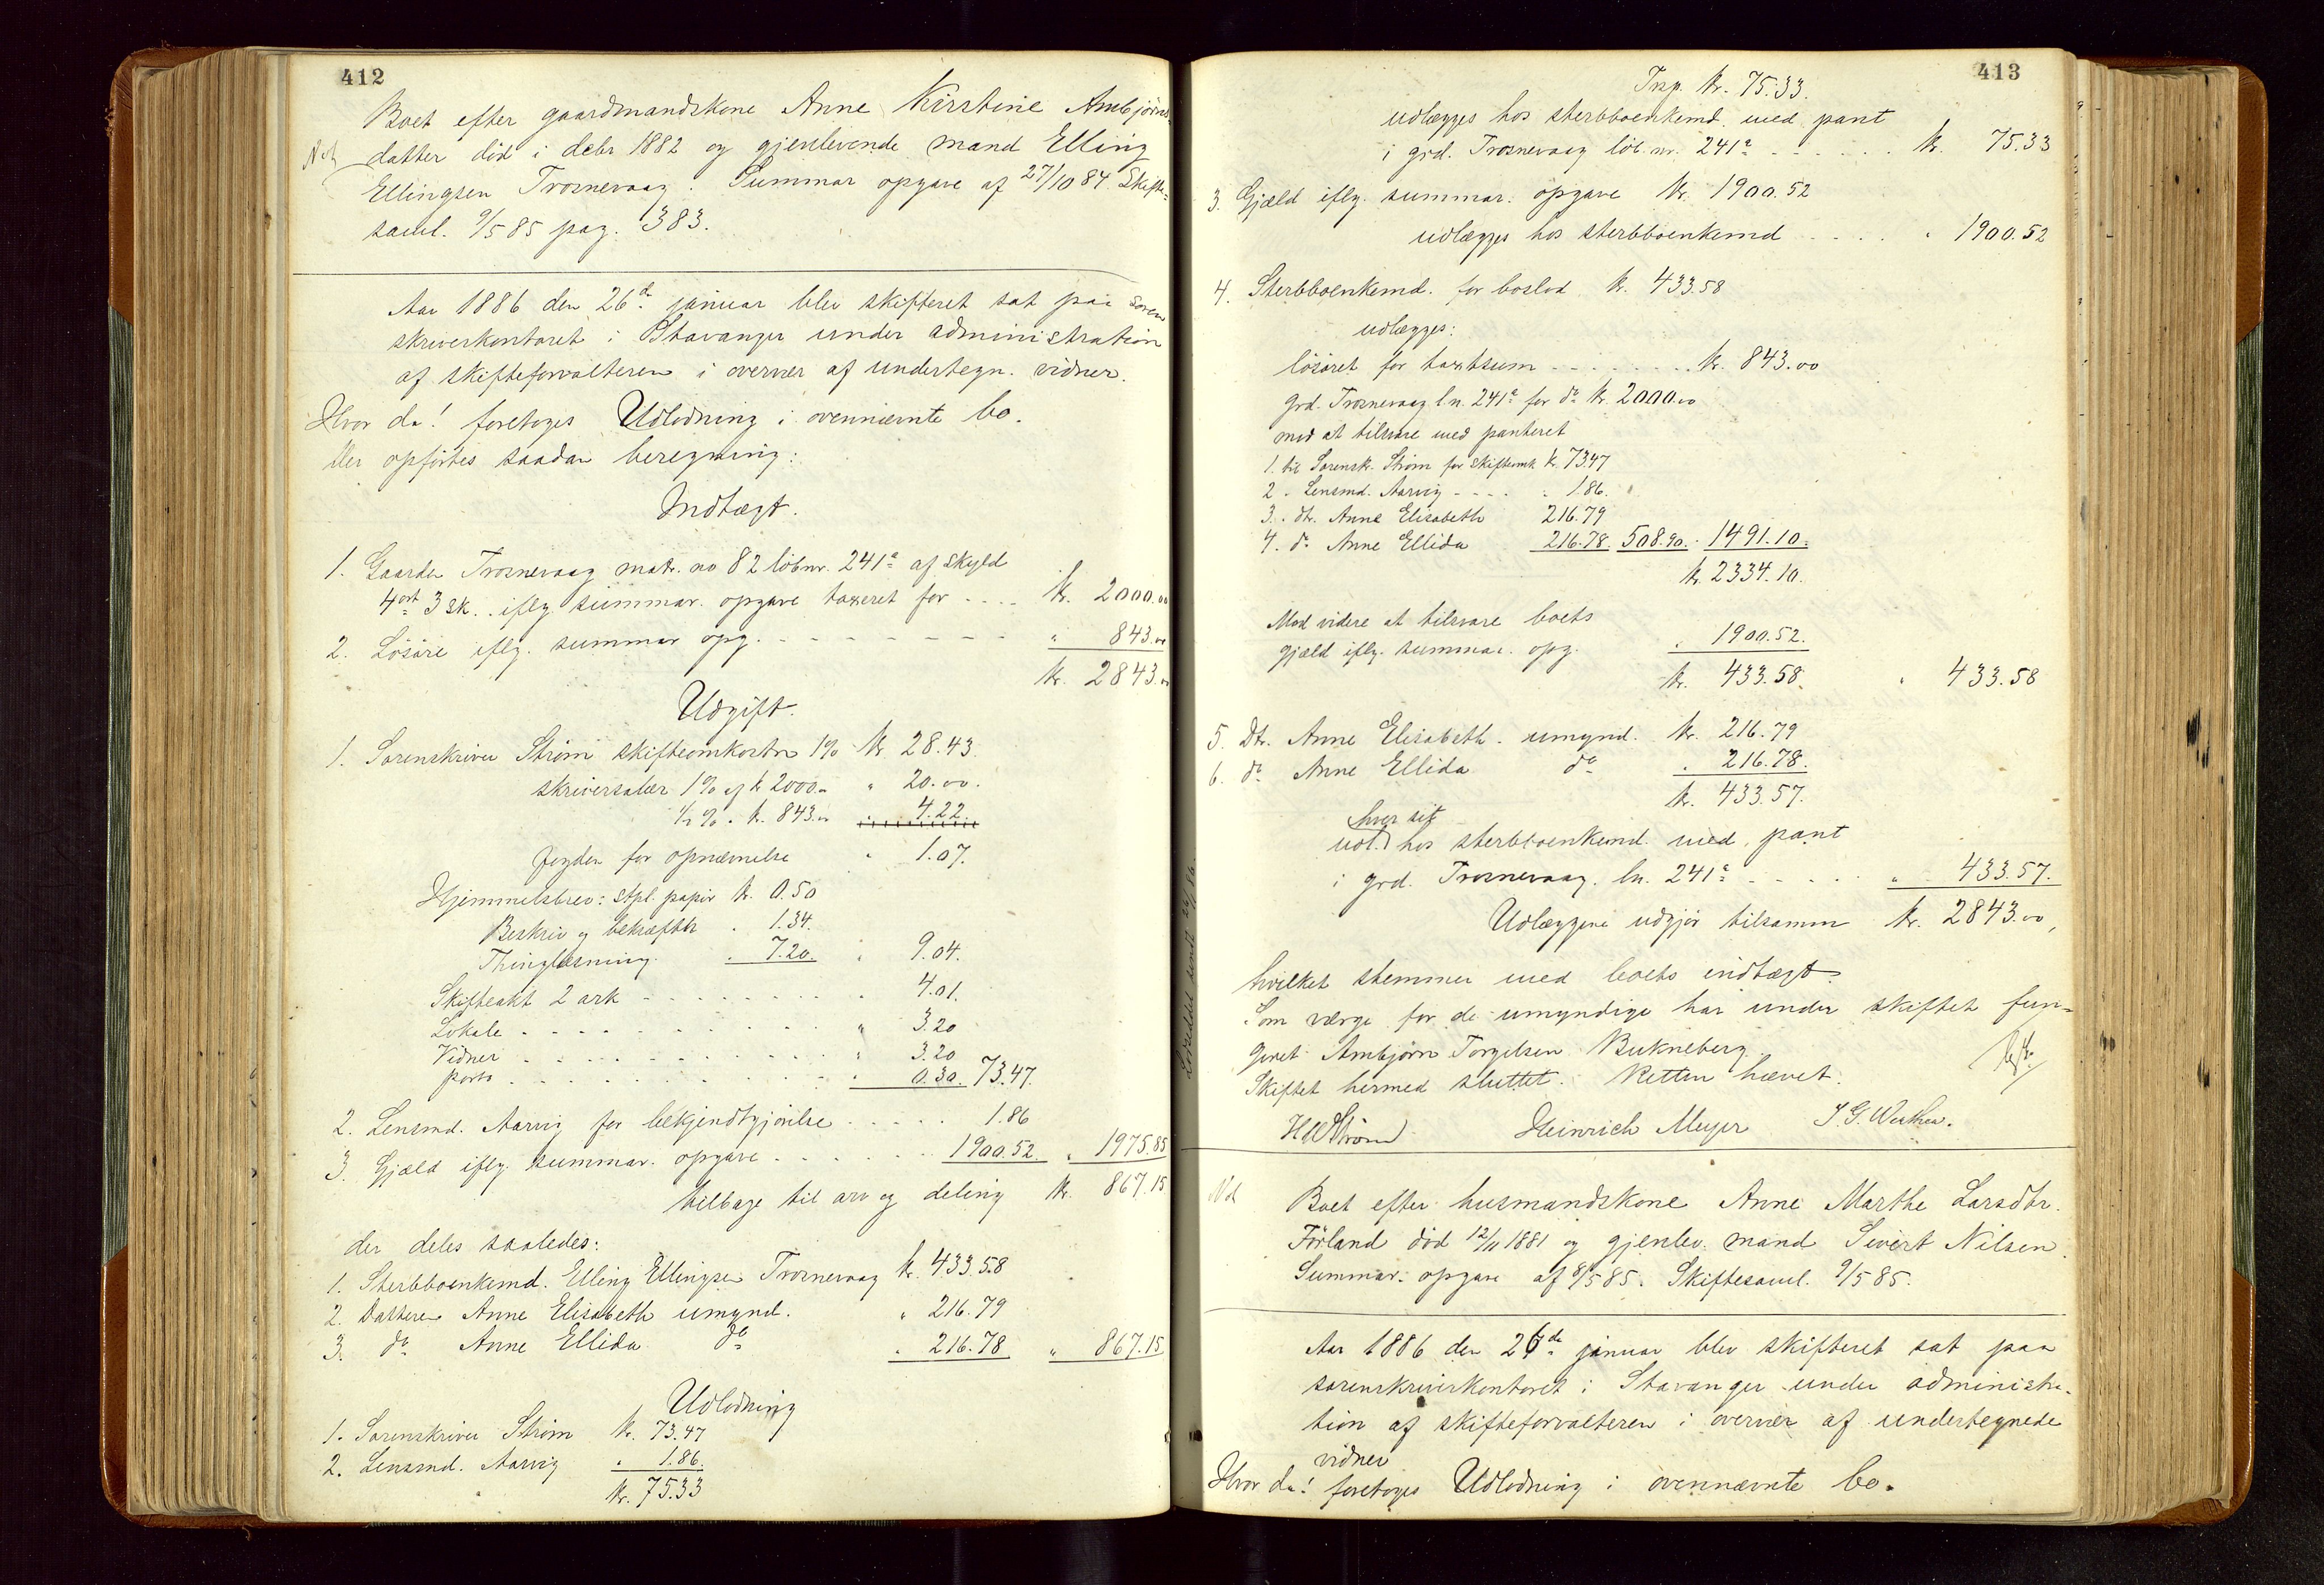 412
Boet efter gaardmandskone Anne Kirstine Ambjørns-
datter död i debr 1882 og gjenlevende mand Elling
Ellingsen Trosnevaag. Summar opgave af 27/10 84 Skifte-
saml. 9/5 85 pag. 383.
Aar 1886 den 26d januar blev skifteret sat paa soren
skriverkontoret i Stavanger under administration
af skifteforvalteren i overvær af undertegn. vidner.
Hvor da! foretoges Udlodning i ovennævnte bo.
Der opförtes saadan beregning:
Indtægt.
1. Gaarden Trosnevaag matr. no 82 löbnr. 241a af skyld
4 ort 3 sk. iflg. summar. opgave taxeret for .... kr. 2000.00
2. Lösöre iflg. summar opg. - - - - - - - - " 843.00
kr. 2843.00
Udgift.
1. Sorenskriver Ström skifteomkostn 1% kr 28.43.
skriversaler 1% af k 2000.- " 20.00.
1/2 % " kr. 843.00 " 4.22
fogden for opnævnelse " 1.07.
Hjemmelsbrev: stpl. papir kr. 0.50
Beskriv og bekræftn " 1.34.
Thinglæsning " 7.20. " 9.04.
Skifteakt 2 ark - - - - - - - - " 4.01.
Lokale - - - - - - - - - - " 3.20
Vidner - - - - - - - - - - " 3.20
porto - - - - - - - - - - " 0.30. 73.47.
2. Lensmd. Aarvig for bekjendtgjörelse - - - - - 1.86
3. Gjæld iflg. summar. opgave - - - - - - 1900.52. " 1975.85
tilbage til arv og deling kr. 867.15
der deles saaledes:
1. Sterbboenkemd. Elling Ellingsen Trosnevaag kr. 433.58
2. Datteren Anne Elisabeth umynd. " 216.79
3. do Anne Ellida do " 216.78. " 867.15
Udlodning
1. Sorenskriver Ström kr. 73.47
2. Lensmd. Aarvig " 1.86.
kr. 75.33
413
Trsp. kr. 75.33.
udlægges hos sterbboenkemd. med pant
i grd. Trosnevaag löb. nr. 241a - - - - - - kr. 75.33
3. Gjæld iflg. summar. opgave kr. 1900.52
udlægges hos sterbboenkemd - - - - " 1900.52
4. Sterbboenkemd. for boslod k. 433.58
udlægges:
lösöret for taxtsum - - - - - - - - kr. 843.00
Grd. Trosnevaag l.n. 241a for do kr. 2000.00
mod at tilsvare med panteret
1. til Sorensk. Ström for skifteomk. kr. 73.47
2 " Lensmd. Aarvig - - - - " 1.86.
3. " dtr. Anne Elisabeth 216.79
4. do Anne Ellida 216.78. 508.90. " 1491.10.
kr 2334.10.
Mod videre at tilsvare boets
gjæld iflg. summar. opg. " 1900.52.
kr. 433.58. " 433.58
5. Dtr. Anne Elisabeth. umynd. kr. 216.79
6. do Anne Ellida do " 216.78.
kr. 433.57.
hver sit
udl. hos sterbboenkemd. med pant
i grd. Trosnevaag. ln. 241a - - - - - " 433.57.
Udlæggene udgjör tilsamm kr. 2843.00,
hvilket stemmer med boets indtægt.
Som værge for de umyndige har under skiftet fun-
geret Ambjørn Torgilsen Bukneberg.
Skiftet hermed sluttet. Retten hævet.
Ström Heinrich Meyer
Boet efter husmandskone Anne Marthe Larsdtr.
Förland död 12/11 1881 og gjenlev. mand Sivert Nilsen.
Summar. opgave af 8/5 85. Skiftesaml. 9/5 85.
Aar 1886 den 26de januar blev skifteret sat paa
sorenskriverkontoret i Stavanger under administra-
tion af skifteforvalteren i overvær af undertegnede
vidner
Hvor da! foretoges Udlodning i ovennævnte bo.